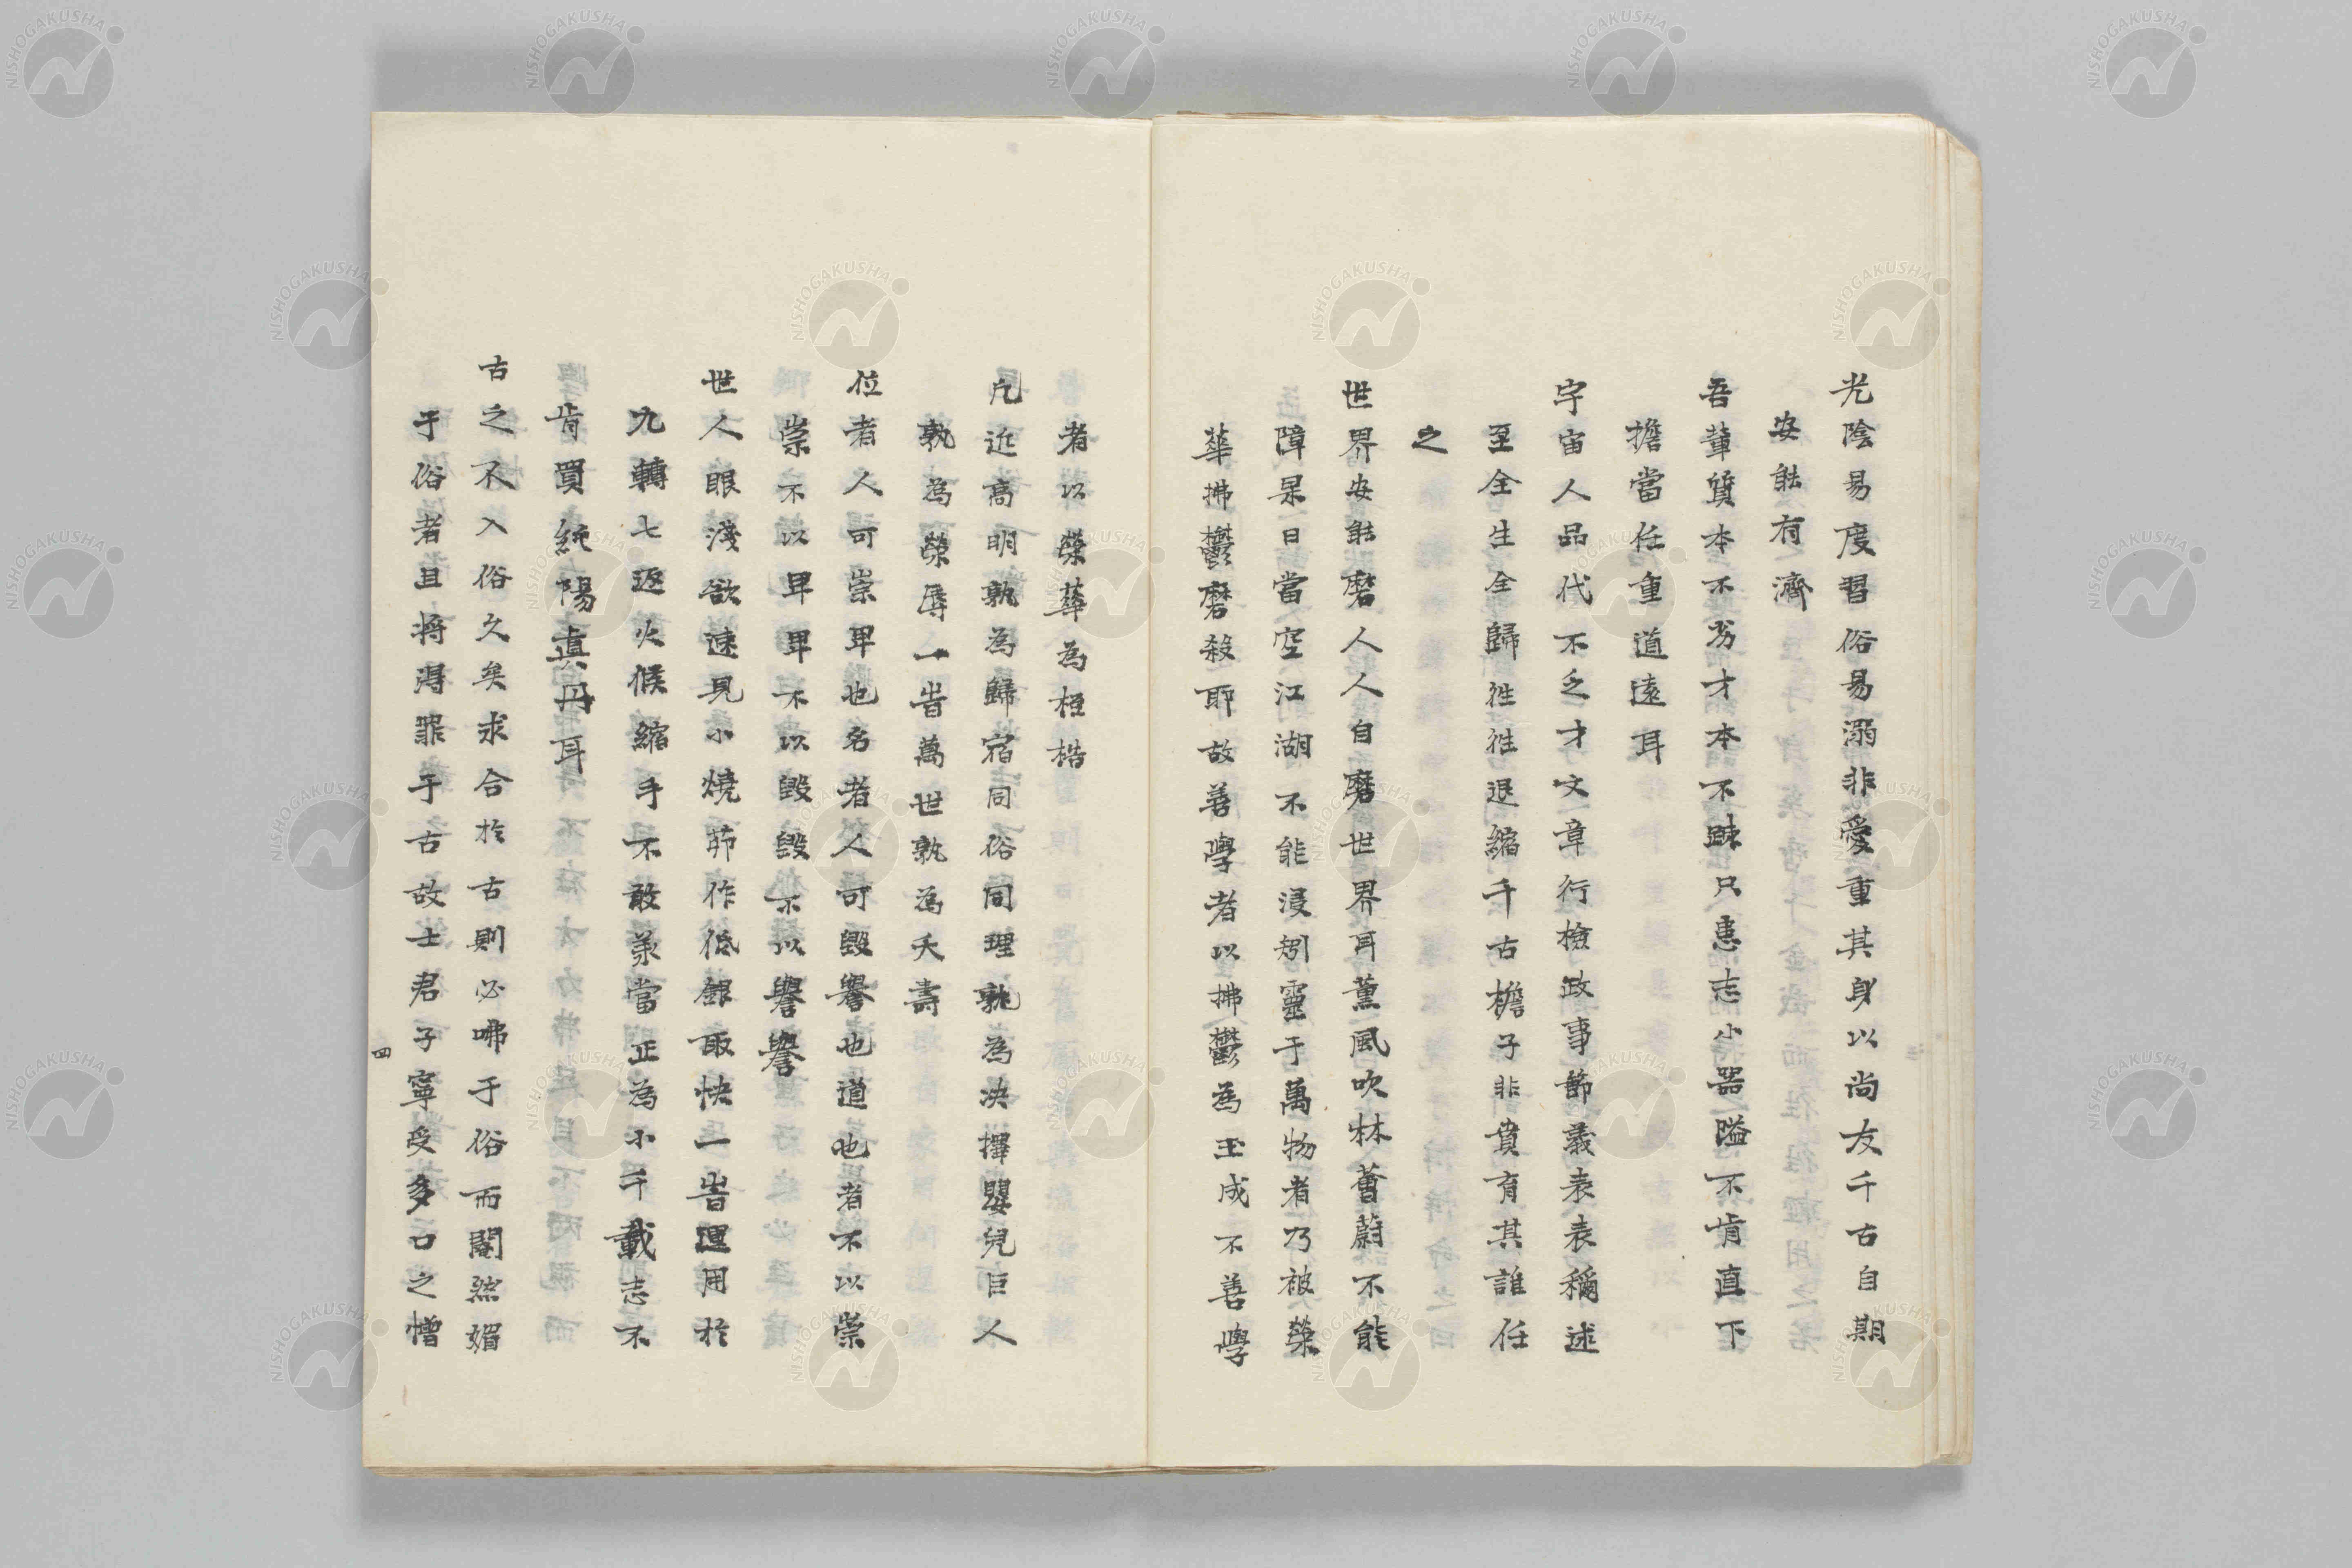 光陰易度習俗易溺非愛重其身以尚友千古自期
安能有濟
吾輩質本不劣才本不踈只患志小器隘不肯直下
擔當任重道遠耳
宇宙人品代不乏才文章行檢政事節義表表稱述
至全生全歸徃徃退縮千古檐子非賁育其誰任
之
世界安能磨人人自磨世界耳薰風吹林薈蔚不能
障杲日當空江湖不能浸矧靈于萬物者乃被榮
華拂鬱磨殺耶故善學者以拂鬱為玉成不善學
者以榮華為桎梏
凡近高明孰為歸宿同俗同理孰為决擇嬰兒巨人
孰為榮辱一旹萬世孰為夭壽
位者人可崇卑也名者人可毀譽也道也者不以崇
崇不以卑卑不以毀毀不以譽譽
世人眼淺欲速見小燒茆作低銀取快一旹迴用於
九轉七返火候縮手不敢羕當正為小千載志不
肯買純陽真丹耳
古之不入俗久矣求合於古則必咈于俗而閹然媚
于俗者且將淂罪于古故士君子寧受多口之憎
四
NISHOGAKUSHA